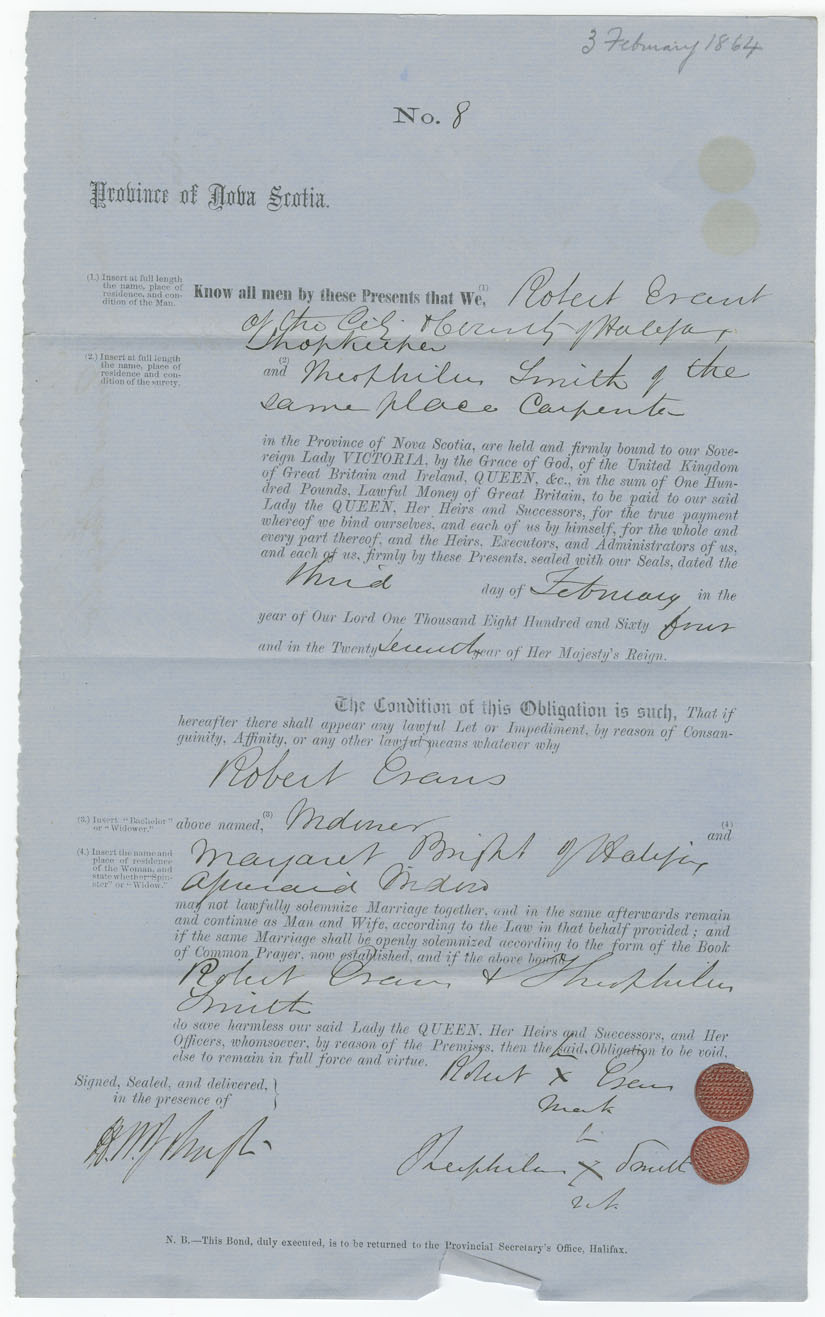 3 February 1864
No. 8
Province of Nova Scotia.
(1.) Insert at full length
the name, place of
residence, and con-
dition of the Man.
Know all men by these Presents that We,(1) Robert Evans
of the City & County of Halifax
Shopkeeper
(2.) Insert at full length
the name, place of
residence and con-
dition of the surety.
and(2) Theophilus Smith of the
same place Carpenter
in the Province of Nova Scotia, are held and firmly bound to our Sove-
reign Lady VICTORIA, by the Grace of God, of the United Kingdom
of Great Britain and Ireland, QUEEN, &c., in the sum of One Hun-
dred Pounds, Lawful Money of Great Britain, to be paid to our said
Lady the QUEEN, Her Heirs and Successors, for the true payment
whereof we bind ourselves, and each of us by himself, for the whole and
every part thereof, and the Heirs, Executors, and Administrators of us,
and each of us, firmly by these Presents, sealed with our Seals, dated the
third day of February in the
year of Our Lord One Thousand Eight Hundred and Sixty four
and in the Twenty seventh year of Her Majesty's Reign.
The Condition of this Obligation is such, That if
hereafter there shall appear any lawful Let or Impediment, by reason of Consan-
guinity, Affinity, or any other lawful means whatever why
Robert Evans
(3.) Insert "Bachelor"
or "Widower."
above named,(3) Widower and(4)
(4.) Insert the name and
place of residence
of the Woman, and
state whether "Spin-
ster" or "Widow."
Margaret Bright of Halifax
aforesaid Widow
may not lawfully solemnize Marriage together, and in the same afterwards remain
and continue as Man and Wife, according to the Law in that behalf provided; and
if the same Marriage shall be openly solemnized according to the form of the Book
of Common Prayer, now established, and if the above bound
Robert Evans & Theophilus
Smith
do save harmless our said Lady the QUEEN, Her Heirs and Successors, and Her
Officers, whomsoever, by reason of the Premises, then the said Obligation to be void,
else to remain in full force and virtue.
Robert X Evans
mark
Signed, Sealed, and delivered,
in the presence of
Theophilus X Smith
N. B.—This Bond, duly executed, is to be returned to the Provincial Secretary's Office, Halifax.